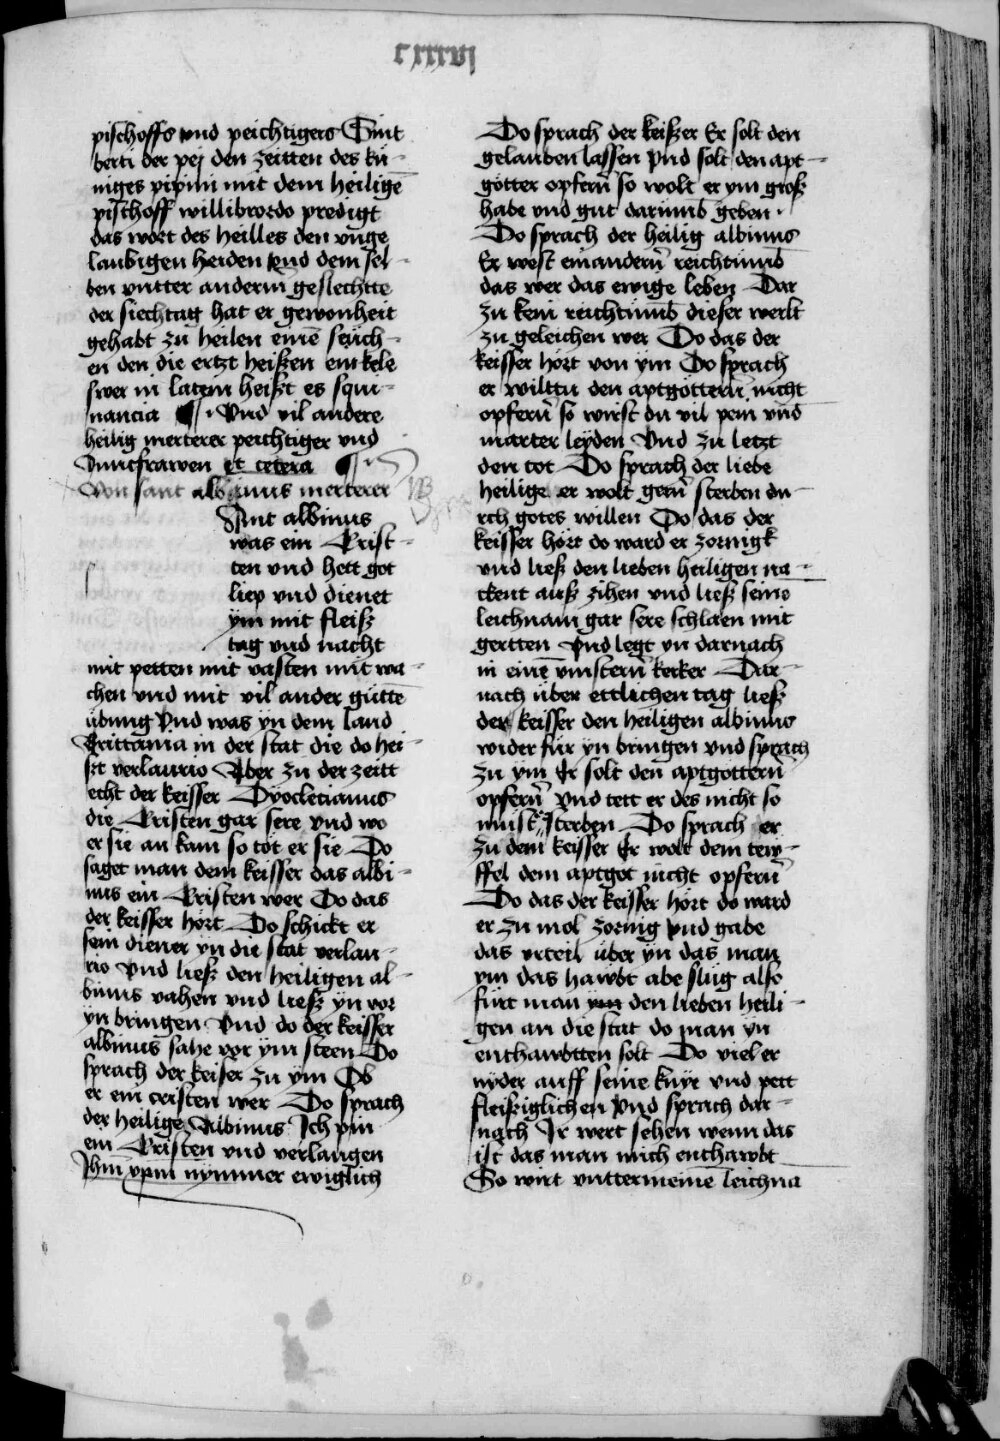 cxxxvj
pischoffs vnd peichtigers Swit
berti der pej den zeitten des kü-
niges pipini mit dem heiligē
pischoff willibrordo predigt
das wort des heilles den vnge
laubigen heiden vnd dem sel-
ben vntter anderm geslechtte
der siechtag hat er gewonheit
gehabt zu heilen einē seüch-
en den die ertzt heißen ein kele
swer in latein heißt es squi-
nancia ¶ Vnd vil andere
heilig merterer peichtiger vnd
Junckfrawen et cetera ¶
Von sant albinus merterer
Sant albinus
was ein Crist-
ten vnd hett got
liep vnd dienet
ÿm mit fleiß
tag vnd nacht
mit petten mit vasten mit wa-
chen vnd mit vil ander guttē
übung Vnd was ÿn dem land
Brittania in der stat die do hei-
ßt verlaurio Aber zu der zeitt
echt der keisser Dyocletianus
die Cristen gar sere Vnd wo
er sie an kam so tot er sie Do
saget man dem keisser das albi-
nus ein Cristen wer Do das
der keisser hört Do schickt er
sein diener ÿn die stat verlau-
rio Vnd ließ den heiligen al-
binus vahen vnd ließ ÿn vor
ÿn bringen Vnd do der keisser
albinus sahe vor ÿm steen Do
sprach der keiser zu ÿm Ob
er ein cristen wer Do sprach
der heilige Albinus Ich pin
ein Cristen vnd verlaugen
Jhm̄ xp̄m nymmer ewiglich
Do sprach der keißer Er solt den
gelauben lassen Vnd solt den apt-
götter opfern̄ so wolt er ym groß
habe vnd gut darumb geben
Do sprach der heilig albinus
Er west ein andern̄ reichtumb
das wer das ewige leben Dar
zu kein reichtumb dieser werlt
zu geleichen wer Do das der
keisser hört von ÿm Do sprach
er wilttu den aptgöttern̄ nicht
opfern̄ so wirst du vil pein vnd
marter leyden Vnd zu letzt
den tot Do sprach der liebe
heilige er wolt gern̄ sterben du-
rch gotes willen Do das der
keisser hört do ward er zornigk
vnd ließ den lieben heiligen na-
ckent auß zihen vnd ließ seinē
leichnam gar sere schlaen mit
gertten Vnd legt yn darnach
in einē vinstern̄ kerker Dar-
nach über ettlichen tag ließ
der keisser den heiligen albinus
wider für ÿn bringen vnd sprach
zu ÿm Er solt den aptgottern̄
opfern̄ Vnd tett er des nicht so
must er sterben Do sprach er
zu dem keisser Er wolt dem tew-
ffel dem aptgot nicht opfern̄
Do das der keisser hört do ward
er zu mol zornig Vnd gabe
das vrteil über ÿn das man
ym das hawbt abe slüg also
fürt man den lieben heili-
gen an die stat do man ÿn
enthawbtten solt Do viel er
nyder auff seine knye vnd pett
fleißiglichen Vnd sprach dar-
nach Ir wert sehen wenn das
ist das man mich enthawbt
So wirt vntter meinē leichna